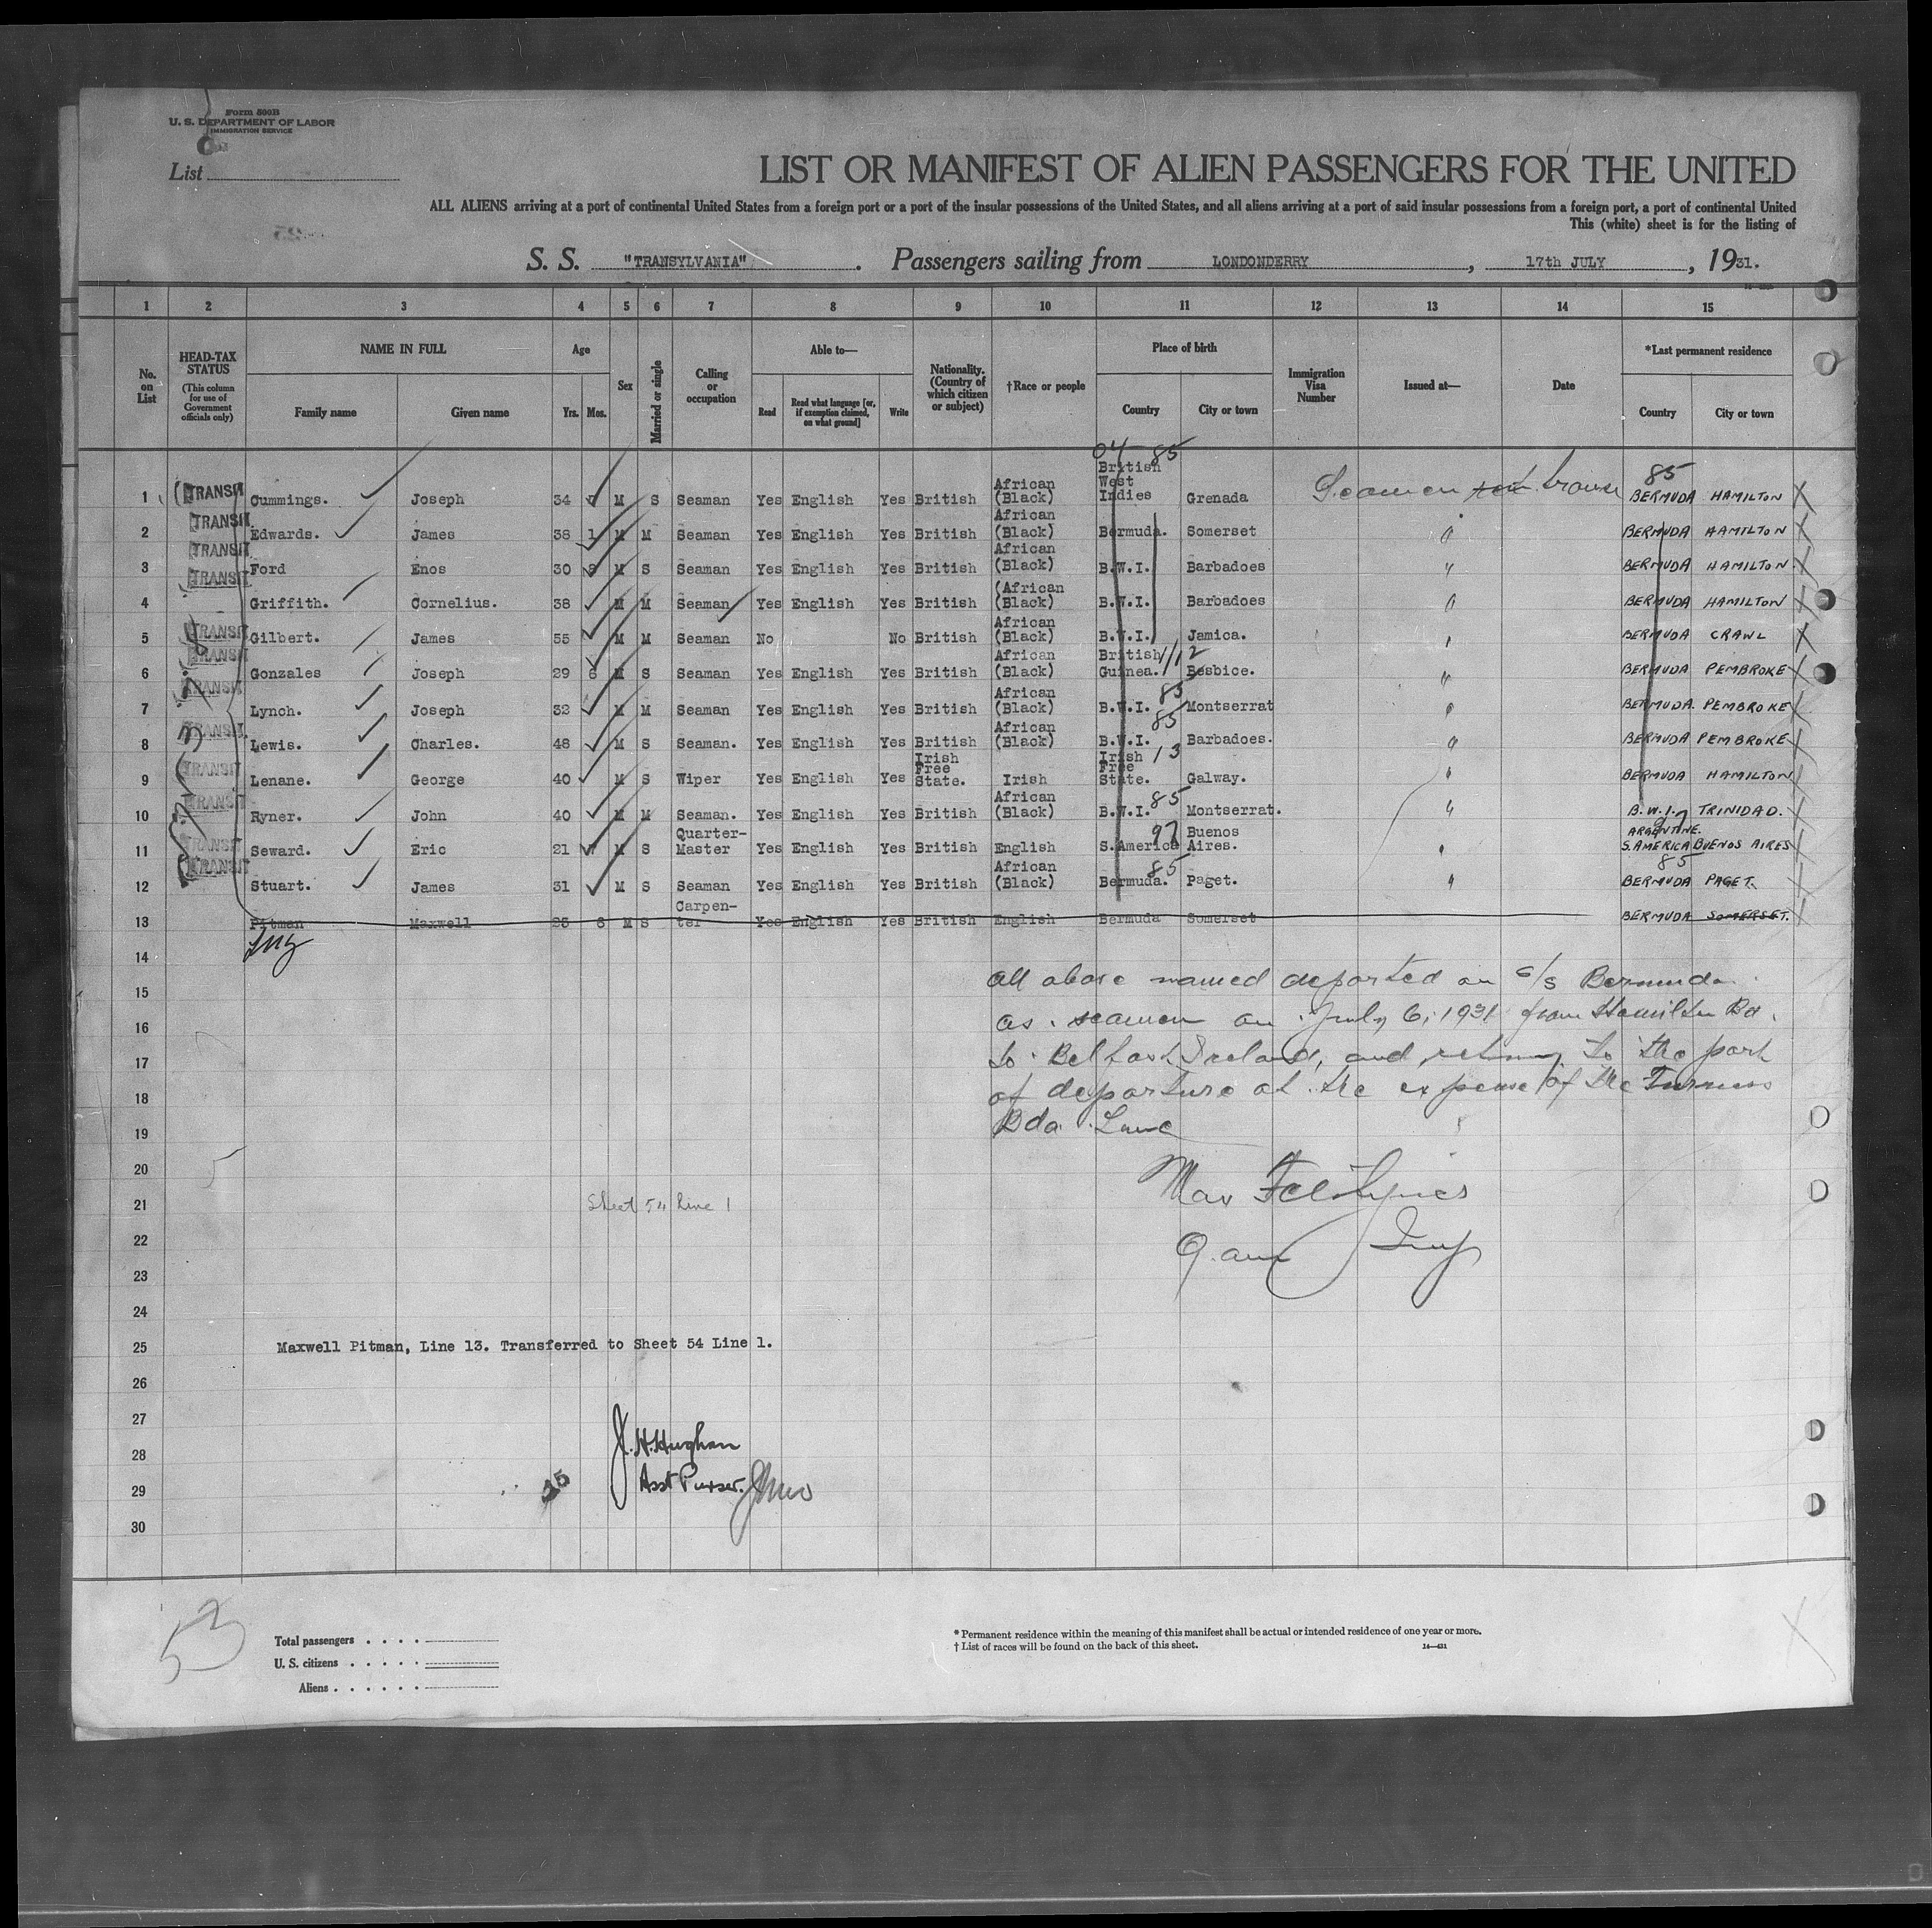 Form 500B
U. S. DEPARTMENT OF LABOR
IMMIGRATION SERVICE
List
LIST OR MANIFEST OF ALIEN PASSENGERS FOR THE UNITED
ALL ALIENS arriving at a port of continental United States from a foreign port or a port of the insular possessions of the United States, and all aliens arriving at a port of said insular possessions from a foreign port, a port of continental United
This (white) sheet is for the listing of
S. S. "TRANSYLVANIA". Passengers sailing from LONDONDERRY, 17th JULY, 1931.
1 2 3 4 5 6 7 8 9 10 11 12 13 14 15
No. on List
HEAD-TAX STATUS (This column for use of Government officials only)
NAME IN FULL
Family name Given name
Age
Yrs. Mos.
Sex
Married or single
Calling or occupation
Able to—
Read Read what language [or, if exemption claimed, on what ground] Write
Nationality. (Country of which citizen or subject)
†Race or people
Place of birth
Country City or town
Immigration Visa Number
Issued at—
Date
*Last permanent residence
Country City or town
04 85
1 TRANSIT Cummings. Joseph 34 M S Seaman Yes English Yes British African (Black) British West Indies Grenada Seamen 85 BERMUDA HAMILTON
2 TRANSIT Edwards. James 38 1 M M Seaman Yes English Yes British African (Black) Bermuda. Somerset BERMUDA HAMILTON
3 TRANSIT Ford Enos 30 M S Seaman Yes English Yes British African (Black) B.W.I. Barbadoes " BERMUDA HAMILTON
4 TRANSIT Griffith. Cornelius. 38 M M Seaman Yes English Yes British (African (Black) B.W.I. Barbadoes BERMUDA HAMILTON
5 TRANSIT Gilbert. James 55 M M Seaman No No British African (Black) B.W.I. Jamica. BERMUDA CRAWL
6 TRANSIT Gonzales Joseph 29 6 M S Seaman Yes English Yes British African (Black) British Guinea. Besbice. " BERMUDA PEMBROKE
7 TRANSIT Lynch. Joseph 32 M M Seaman Yes English Yes British African (Black) B.W.I. 85 Montserrat BERMUDA. PEMBROKE
8 TRANSIT Lewis. Charles. 48 M S Seaman. Yes English Yes British African (Black) B.W.I. 85 Barbadoes. BERMUDA PEMBROKE
9 TRANSIT Lenane. George 40 M S Wiper Yes English Yes Irish Free State. Irish Irish Free State. 13 Galway. BERMUDA HAMILTON
10 TRANSIT Ryner. John 40 M M Seaman. Yes English Yes British African (Black) B.W.I. 85 Montserrat. " B.W.I. TRINIDAD.
11 TRANSIT Seward. Eric 21 M S Quarter-Master Yes English Yes British English S.America 97 Buenos Aires. ARGENTINE. S.AMERICA BUENOS AIRES
12 TRANSIT Stuart. James 31 M S Seaman Yes English Yes British African (Black) Bermuda. 85 Paget. " 85 BERMUDA PAGET.
13 Pitman Maxwell 25 6 M S Carpen-ter Yes English Yes British English Bermuda Somerset BERMUDA SOMERSET.
14
15
16
17
18
19
20
21
22
23
24
25
26
27
28
29
30
all above named departed on S/S Bermuda
as seamen on July 6, 1931 from Hamilton Bd.
to Belfast Ireland, and returning to the port
of departure at the expense of the Furness
Bda Line
Sheet 54 line 1
Maxwell Pitman, Line 13. Transferred to Sheet 54 Line 1.
J. H. Hughan
Asst Purser.
53
Total passengers
U. S. citizens
Aliens
* Permanent residence within the meaning of this manifest shall be actual or intended residence of one year or more.
† List of races will be found on the back of this sheet.
14—431